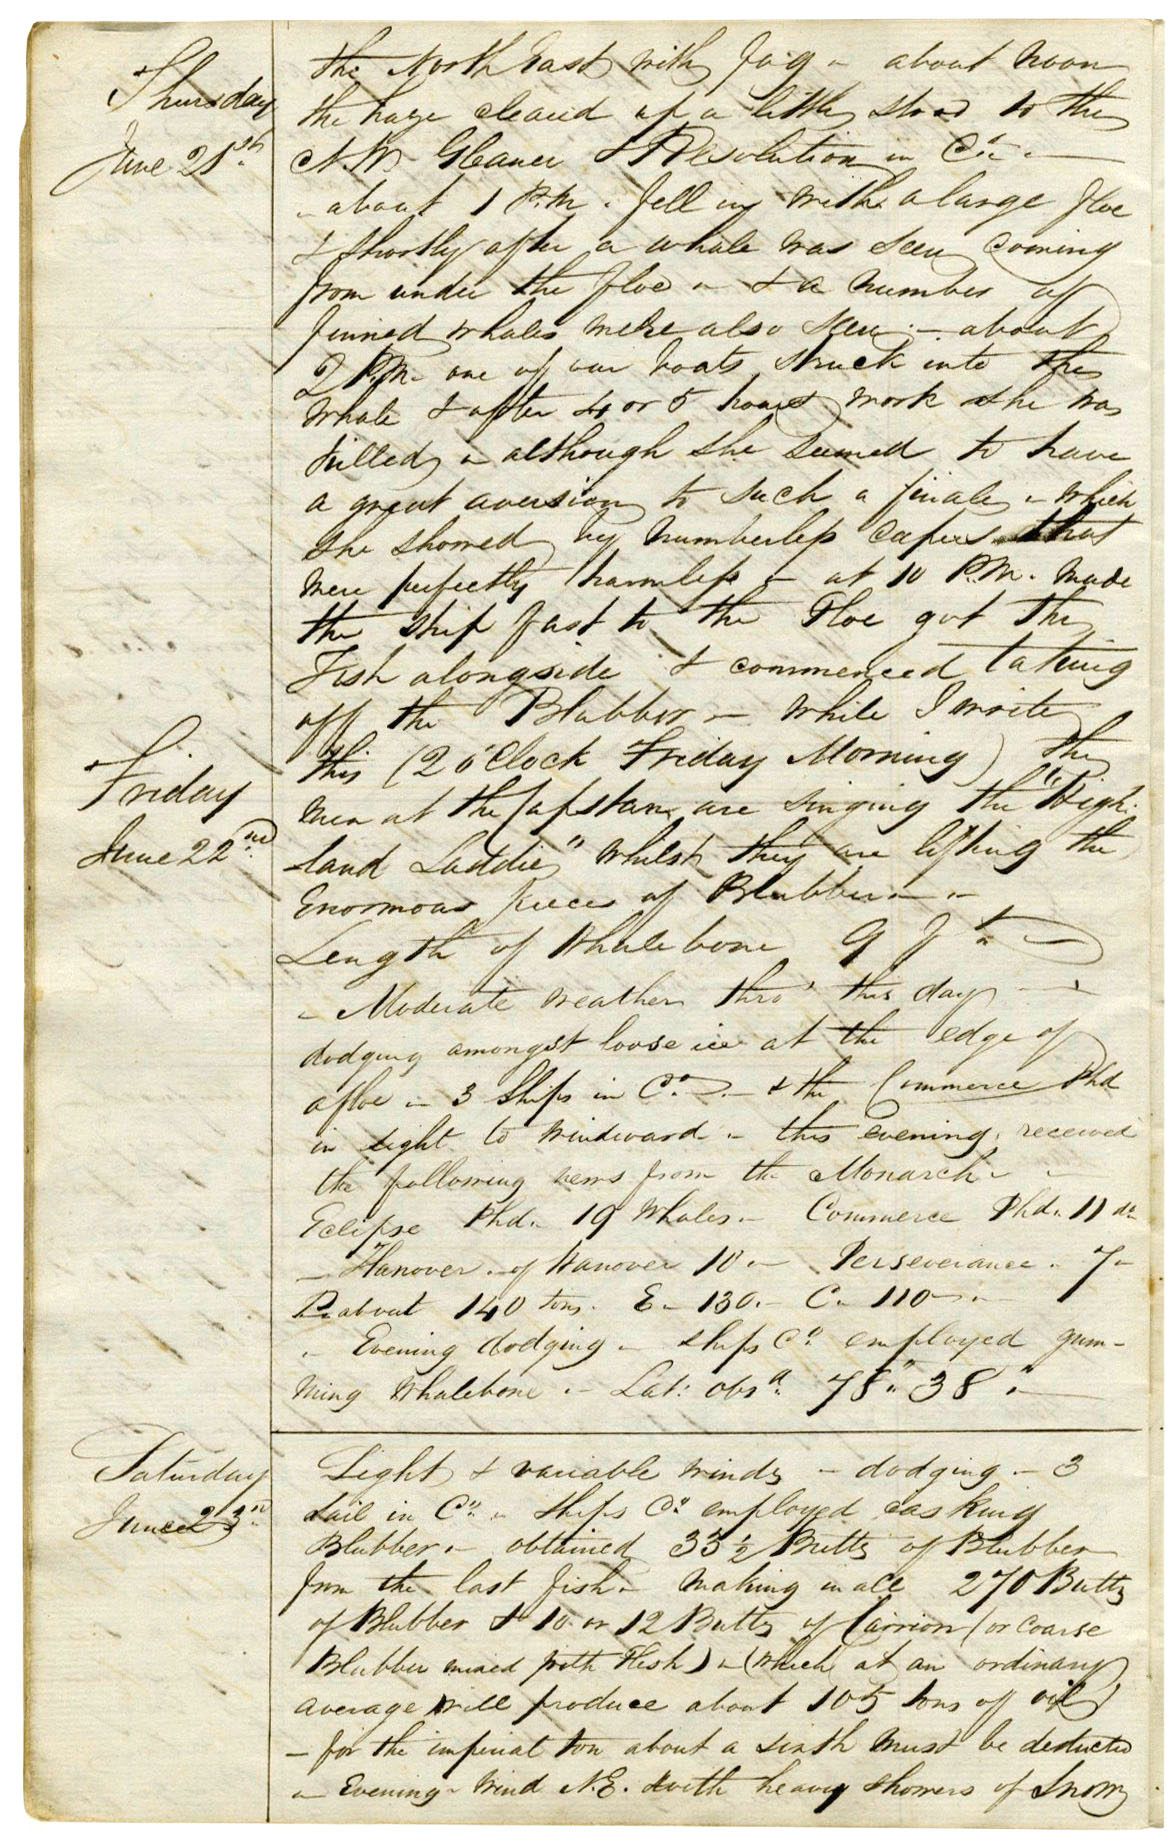 Thursday
June 21st
the North East with fog - about noon
the haze cleared up a little stood to the
N.W. Gleaner & Resolution in Co. -
- about 1 P.M. fell in with a large floe
& shortly after a whale was seen coming
from under the floe - & a number of
finned whales were also seen - about
2 P.M. one of our boats struck into this
whale & after 4 or 5 hours work she was
killed - although she seemed to have
a great aversion to such a finale - which
she showed by numberless capers that
were perfectly harmless - at 10 P.M. made
the ship fast to the Floe got the
Fish alongside & commenced taking
off the Blubber - while I write
this (2 o'Clock Friday Morning) the
Friday
June 22nd
men at the Capstan are singing the "High-
land Laddie" whilst they are lifting the
Enormous pieces of Blubber -
Length of Whalebone 9 ft
- Moderate weather thro' this day -
dodging amongst loose ice at the edge of
a floe - 3 Ships in Co. - & the Commerce Phd
in sight to windward - this evening received
the following news from the Monarch -
Eclipse Phd. 19 Whales - Commerce Phd. 11 do
- Hanover of Hanover 10 - Perseverance - 7 -
P. about 140 tons. E - 130 - C - 110 -
- Evening dodging - ships Co. employed gum-
ming Whalebone - Lat: obsd. 78" 38" -
Saturday
June 23rd
Light & variable winds - dodging - 3
Sail in Co. - Ships Co. employed casking
Blubber - obtained 33 1/2 Butts of Blubber
from the last fish - making in all 270 Butts
of Blubber & 10 or 12 Butts of Carrion (or coarse
Blubber mixed with Flesh) - (which at an ordinary
average will produce about 105 tons of oil)
- for the imperial ton about a sixth must be deducted
- Evening - Wind N.E. with heavy showers of Snow